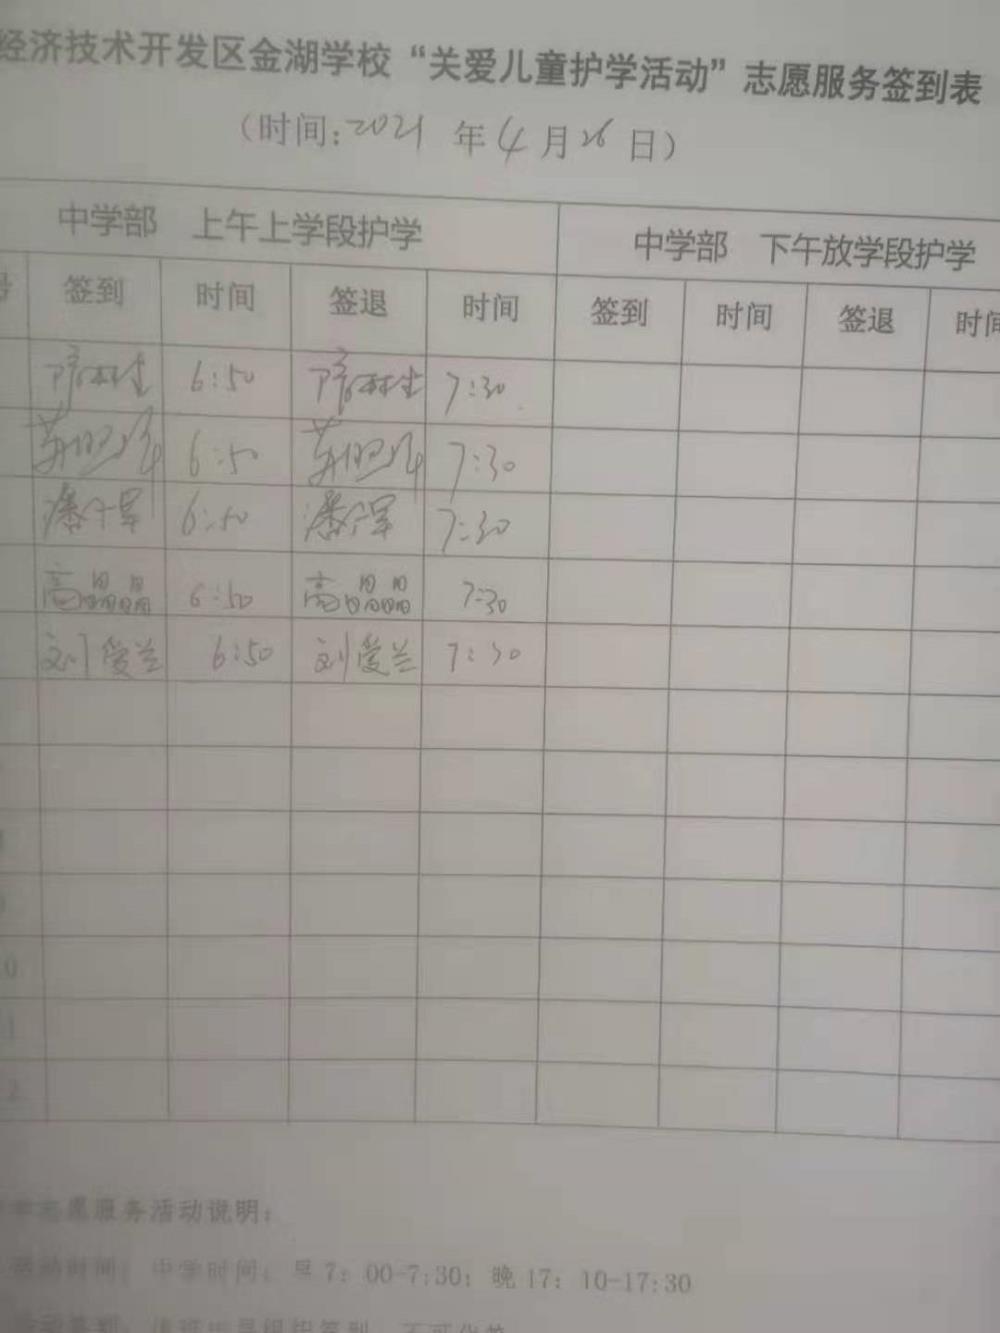 经济技术开发区金湖学校“关爱儿童护学活动”志愿服务签到表
（时间:2021年4月26日）
中学部 上午上学段护学 中学部 下午放学段护学
号 签到 时间 签退 时间 签到 时间 签退 时间
6:50 7:30
6:50 7:30
潘 军 6:50 潘 军 7:30
高晶晶 6:50 高晶晶 7:30
刘爱兰 6:50 刘爱兰 7:30
0
1
2
志愿服务活动说明：
活动时间：中学时间：早7：00-7:30；晚17：10-17:30